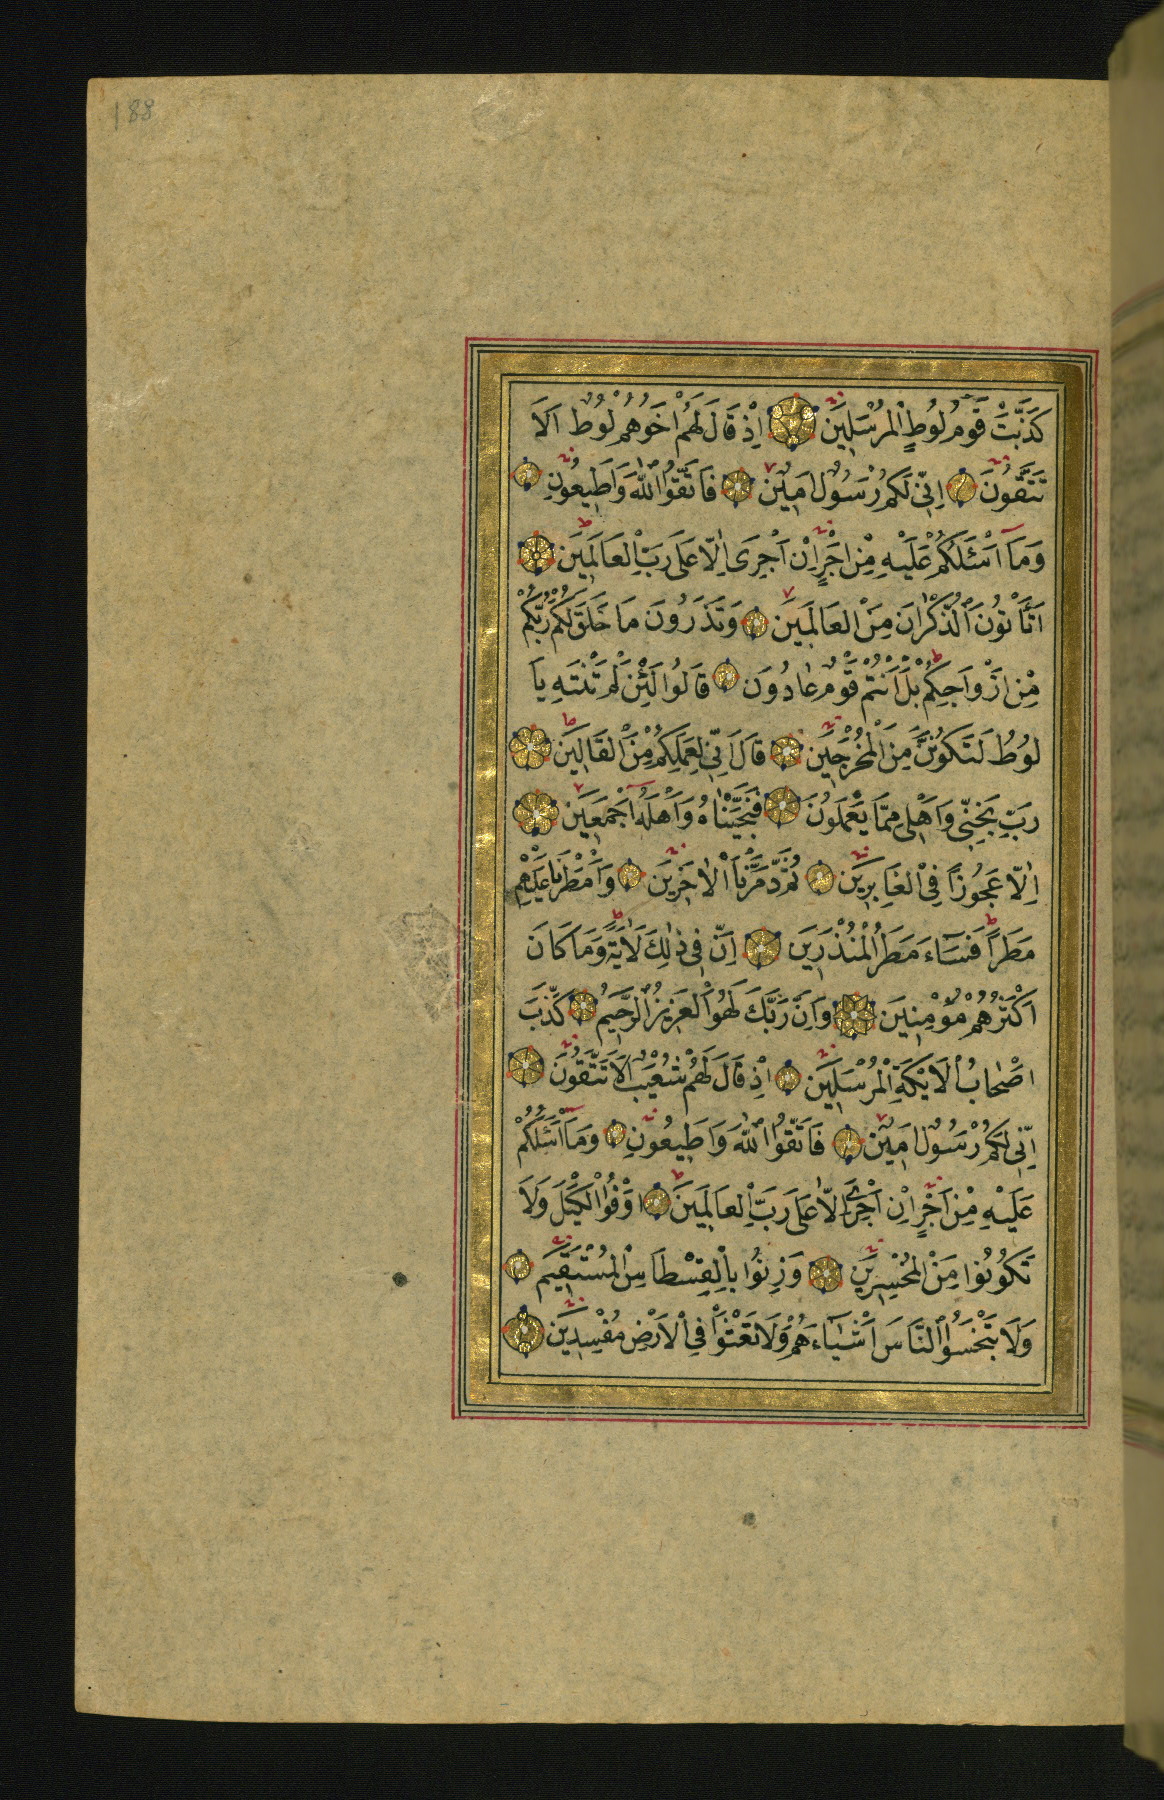 188
كَذَّبَتْ قَوْمُ لُوطٍ الْمُرْسَلِينَ اِذْ قَالَ لَهُمْ اَخُوهُمْ لُوطٌ اَلَا
تَتَّقُونَ اِنِّى لَكُمْ رَسُولٌ اَمِينٌ فَاتَّقُوا اللّٰهَ وَاَطِيعُونِ
وَمَآ اَسْئَلُكُمْ عَلَيْهِ مِنْ اَجْرٍ اِنْ اَجْرِىَ اِلَّا عَلَى رَبِّ الْعَالَمِينَ
اَتَأْتُونَ الذُّكْرَانَ مِنَ الْعَالَمِينَ وَتَذَرُونَ مَا خَلَقَ لَكُمْ رَبُّكُمْ
مِنْ اَزْوَاجِكُمْ بَلْ اَنْتُمْ قَوْمٌ عَادُونَ قَالُوا لَئِنْ لَمْ تَنْتَهِ يَا
لُوطُ لَتَكُونَنَّ مِنَ الْمُخْرَجِينَ قَالَ اِنِّى لِعَمَلِكُمْ مِنَ الْقَالِينَ
رَبِّ نَجِّنِى وَاَهْلِى مِمَّا يَعْمَلُونَ فَنَجَّيْنَاهُ وَاَهْلَهُٓ اَجْمَعِينَ
اِلَّا عَجُوزًا فِى الْغَابِرِينَ ثُمَّ دَمَّرْنَا الْاٰخَرِينَ وَاَمْطَرْنَا عَلَيْهِمْ
مَطَرًا فَسَآءَ مَطَرُ الْمُنْذَرِينَ اِنَّ فِى ذٰلِكَ لَاٰيَةً وَمَا كَانَ
اَكْثَرُهُمْ مُؤْمِنِينَ وَاِنَّ رَبَّكَ لَهُوَ الْعَزِيزُ الرَّحِيمُ كَذَّبَ
اَصْحَابُ الْاَيْكَةِ الْمُرْسَلِينَ اِذْ قَالَ لَهُمْ شُعَيْبٌ اَلَا تَتَّقُونَ
اِنِّى لَكُمْ رَسُولٌ اَمِينٌ فَاتَّقُوا اللّٰهَ وَاَطِيعُونِ وَمَآ اَسْئَلُكُمْ
عَلَيْهِ مِنْ اَجْرٍ اِنْ اَجْرِىَ اِلَّا عَلَى رَبِّ الْعَالَمِينَ اَوْفُوا الْكَيْلَ وَلَا
تَكُونُوا مِنَ الْمُخْسِرِينَ وَزِنُوا بِالْقِسْطَاسِ الْمُسْتَقِيمِ
وَلَا تَبْخَسُوا النَّاسَ اَشْيَآءَهُمْ وَلَا تَعْثَوْا فِى الْاَرْضِ مُفْسِدِينَ